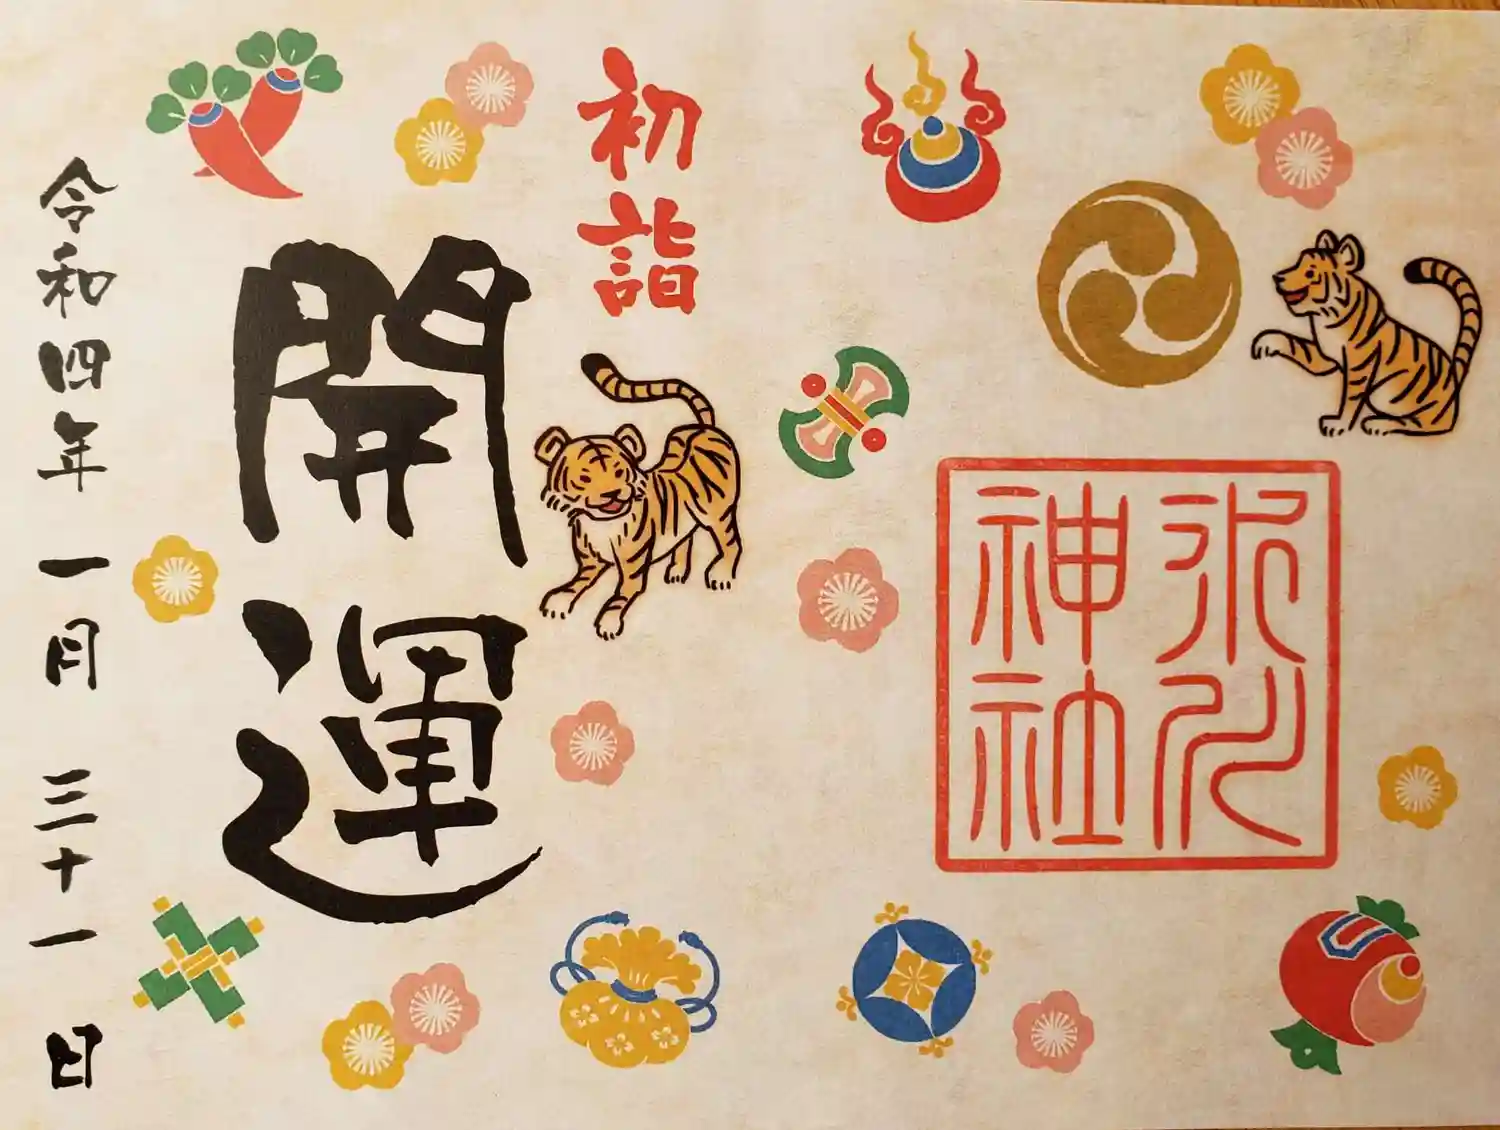 氷川
神社
初詣
開運
令和四年一月三十一日